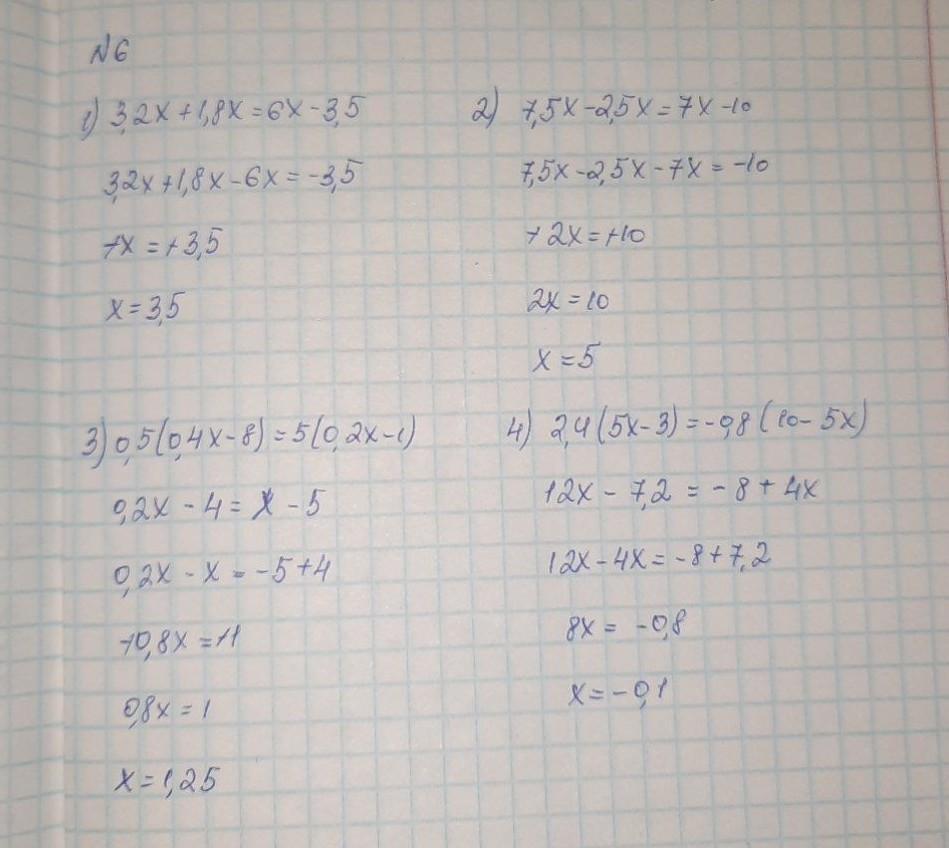 №6
1) 3,2x+1,8x=6x-3,5
3,2x+1,8x-6x=-3,5
+x=+3,5
x=3,5
2) 7,5x-2,5x=7x-10
7,5x-2,5x-7x=-10
+2x=+10
2x=10
x=5
3) 0,5(0,4x-8)=5(0,2x-1)
0,2x-4=x-5
0,2x-x=-5+4
+0,8x=+1
0,8x=1
x=1,25
4) 2,4(5x-3)=-0,8(10-5x)
12x-7,2=-8+4x
12x-4x=-8+7,2
8x=-0,8
x=-0,1